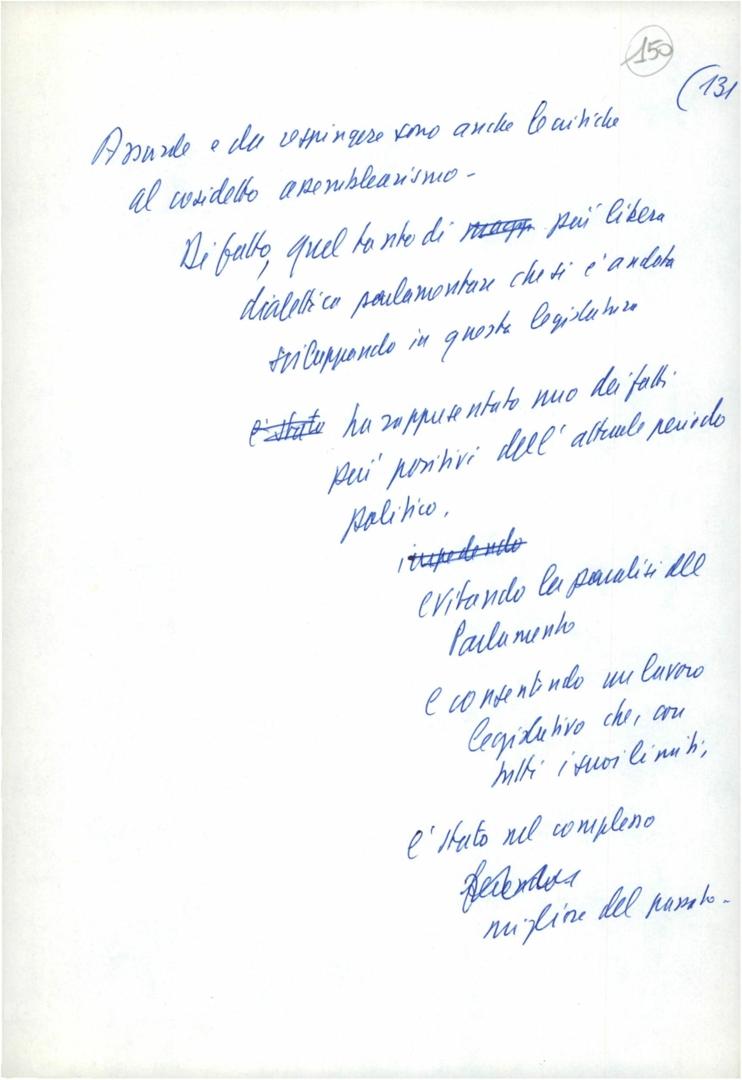 150
(131
Assurde e da respingere sono anche le critiche
al cosidetto assemblearismo -
Di fatto, quel tanto di magg più libera
dialettica parlamentare che si è andata
sviluppando in questa legislatura
è stato ha rappresentato uno dei fatti
più positivi dell'attuale periodo
politico,
impedendo
evitando la paralisi del
Parlamento
e consentendo un lavoro
legislativo che, con
tutti i suoi limiti,
è stato nel complesso
migliore del passato -